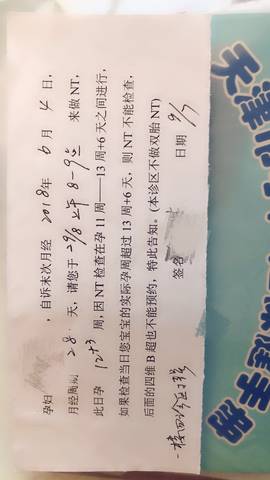 孕妇 ，自诉末次月经 2018年 6 月 4 日，
月经周期 28 天，请您于 29/8 上午 8-9点 来做 NT，
此日孕 12+3 周，因 NT 检查在孕 11 周——13 周+6 天之间进行，
如果检查当日您宝宝的实际孕周超过 13 周+6 天，则 NT 不能检查，
后面的四维 B 超也不能预约，特此告知。(本诊区不做双胎 NT)
签名 日期 9/7
天津市
健手册